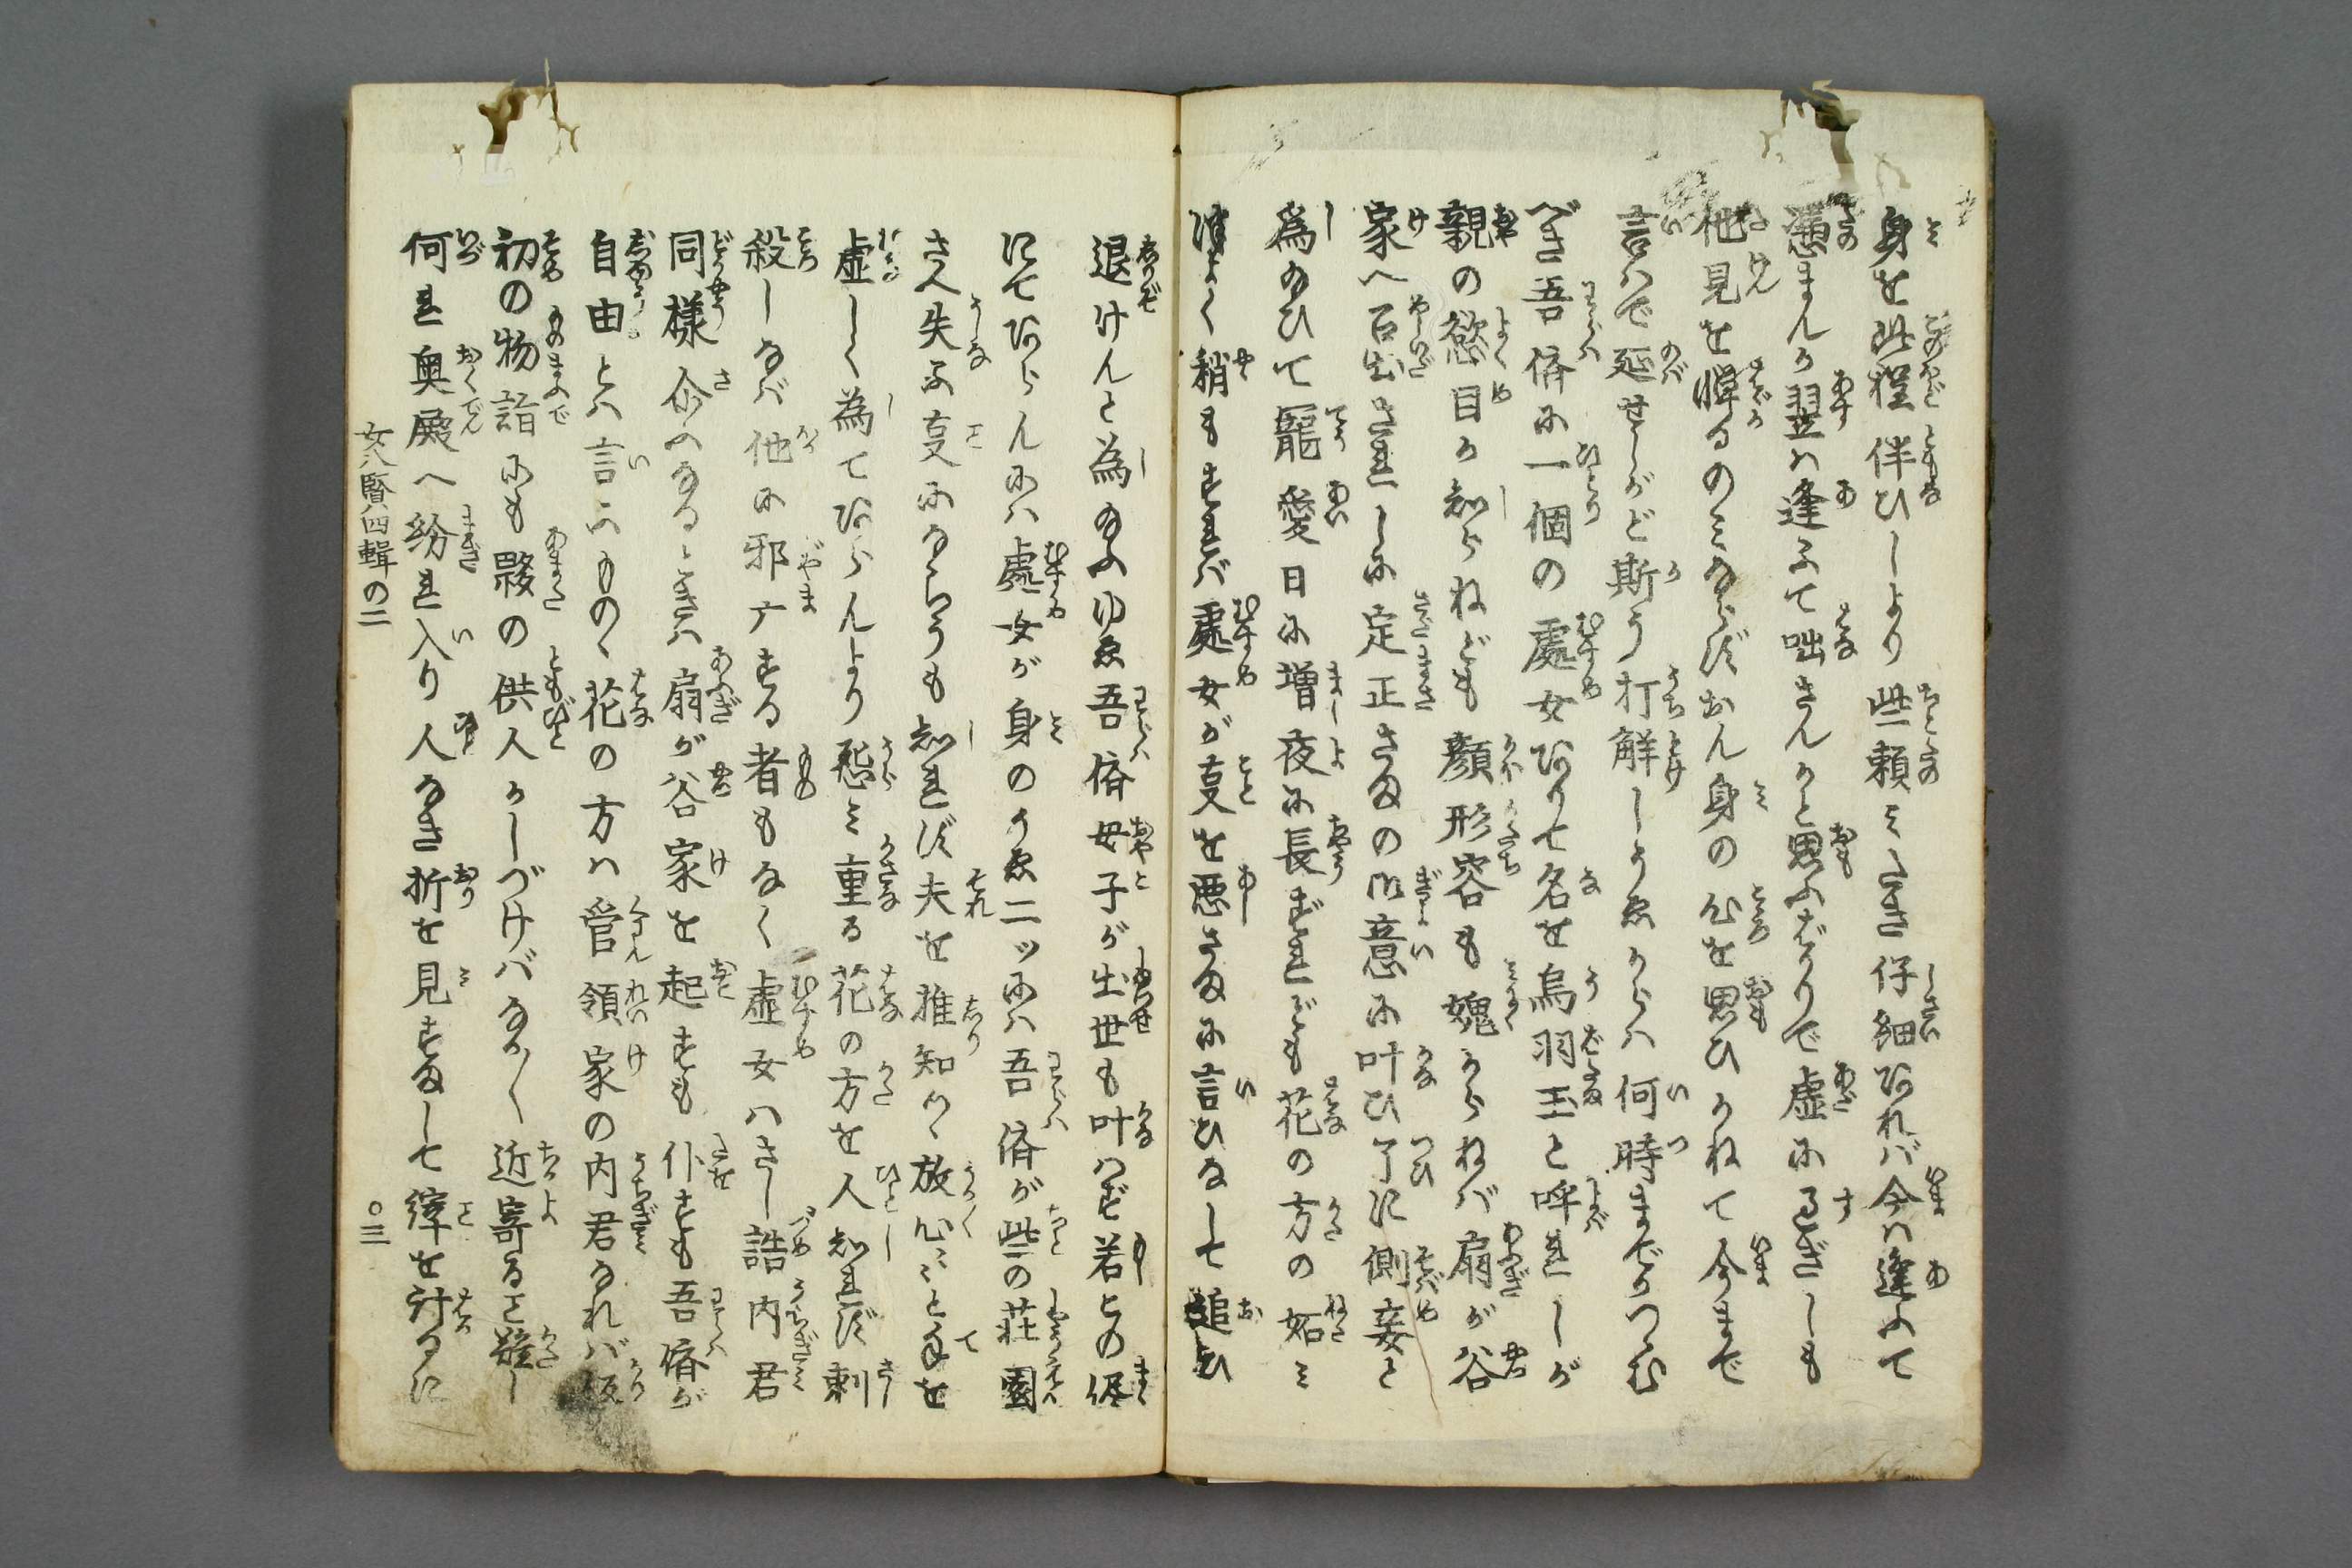 身を此程伴ひしより些頼みたき仔細あれバ今は逢ふて
憑まんか翌は逢ふて咄さんかと思ふばかりで虚にすぎしも
他見を憚るのみならずおん身の心を思ひかねて今まで
言はで延せしがど斯う打解しうゑからハ何時までかつゝむ
べき吾儕に一個の處女ありて名を烏羽玉と呼れしが
親の慾目か知らねども顔形容も媿からねバ扇が谷
家へ召出されしに定正さまの御意に叶ひ了に側妾と
為給ひて寵愛日に増夜に長ずれども花の方の妬み
強く稍もすれバ處女が叓を悪さまに言ひなして追ひ
退けんと為給ふゆゑ吾儕母子が出世も叶はず若との侭
にてあらんにハ處女が身のうゑ二ッにハ吾儕が些の荘園
さへ失ふ叓にならうも知れず夫を推知りつゝ放心〳〵と手を
虚しく為てあらんより怨み重る花の方を人知れず刺
殺しなバ他に邪广する者もなく處女ハさし詰内君
同様介へなるときハ扇が谷家を起すも仆すも吾儕が
自由とハ言ふものゝ花の方ハ管領家の内君なれバ仮
初の物詣にも夥の供人かしづけバなか〳〵近寄ること難し
何れ奥殿へ紛れ入り人なき折を見すまして縡を計るに
女八賢四輯の二
〇三